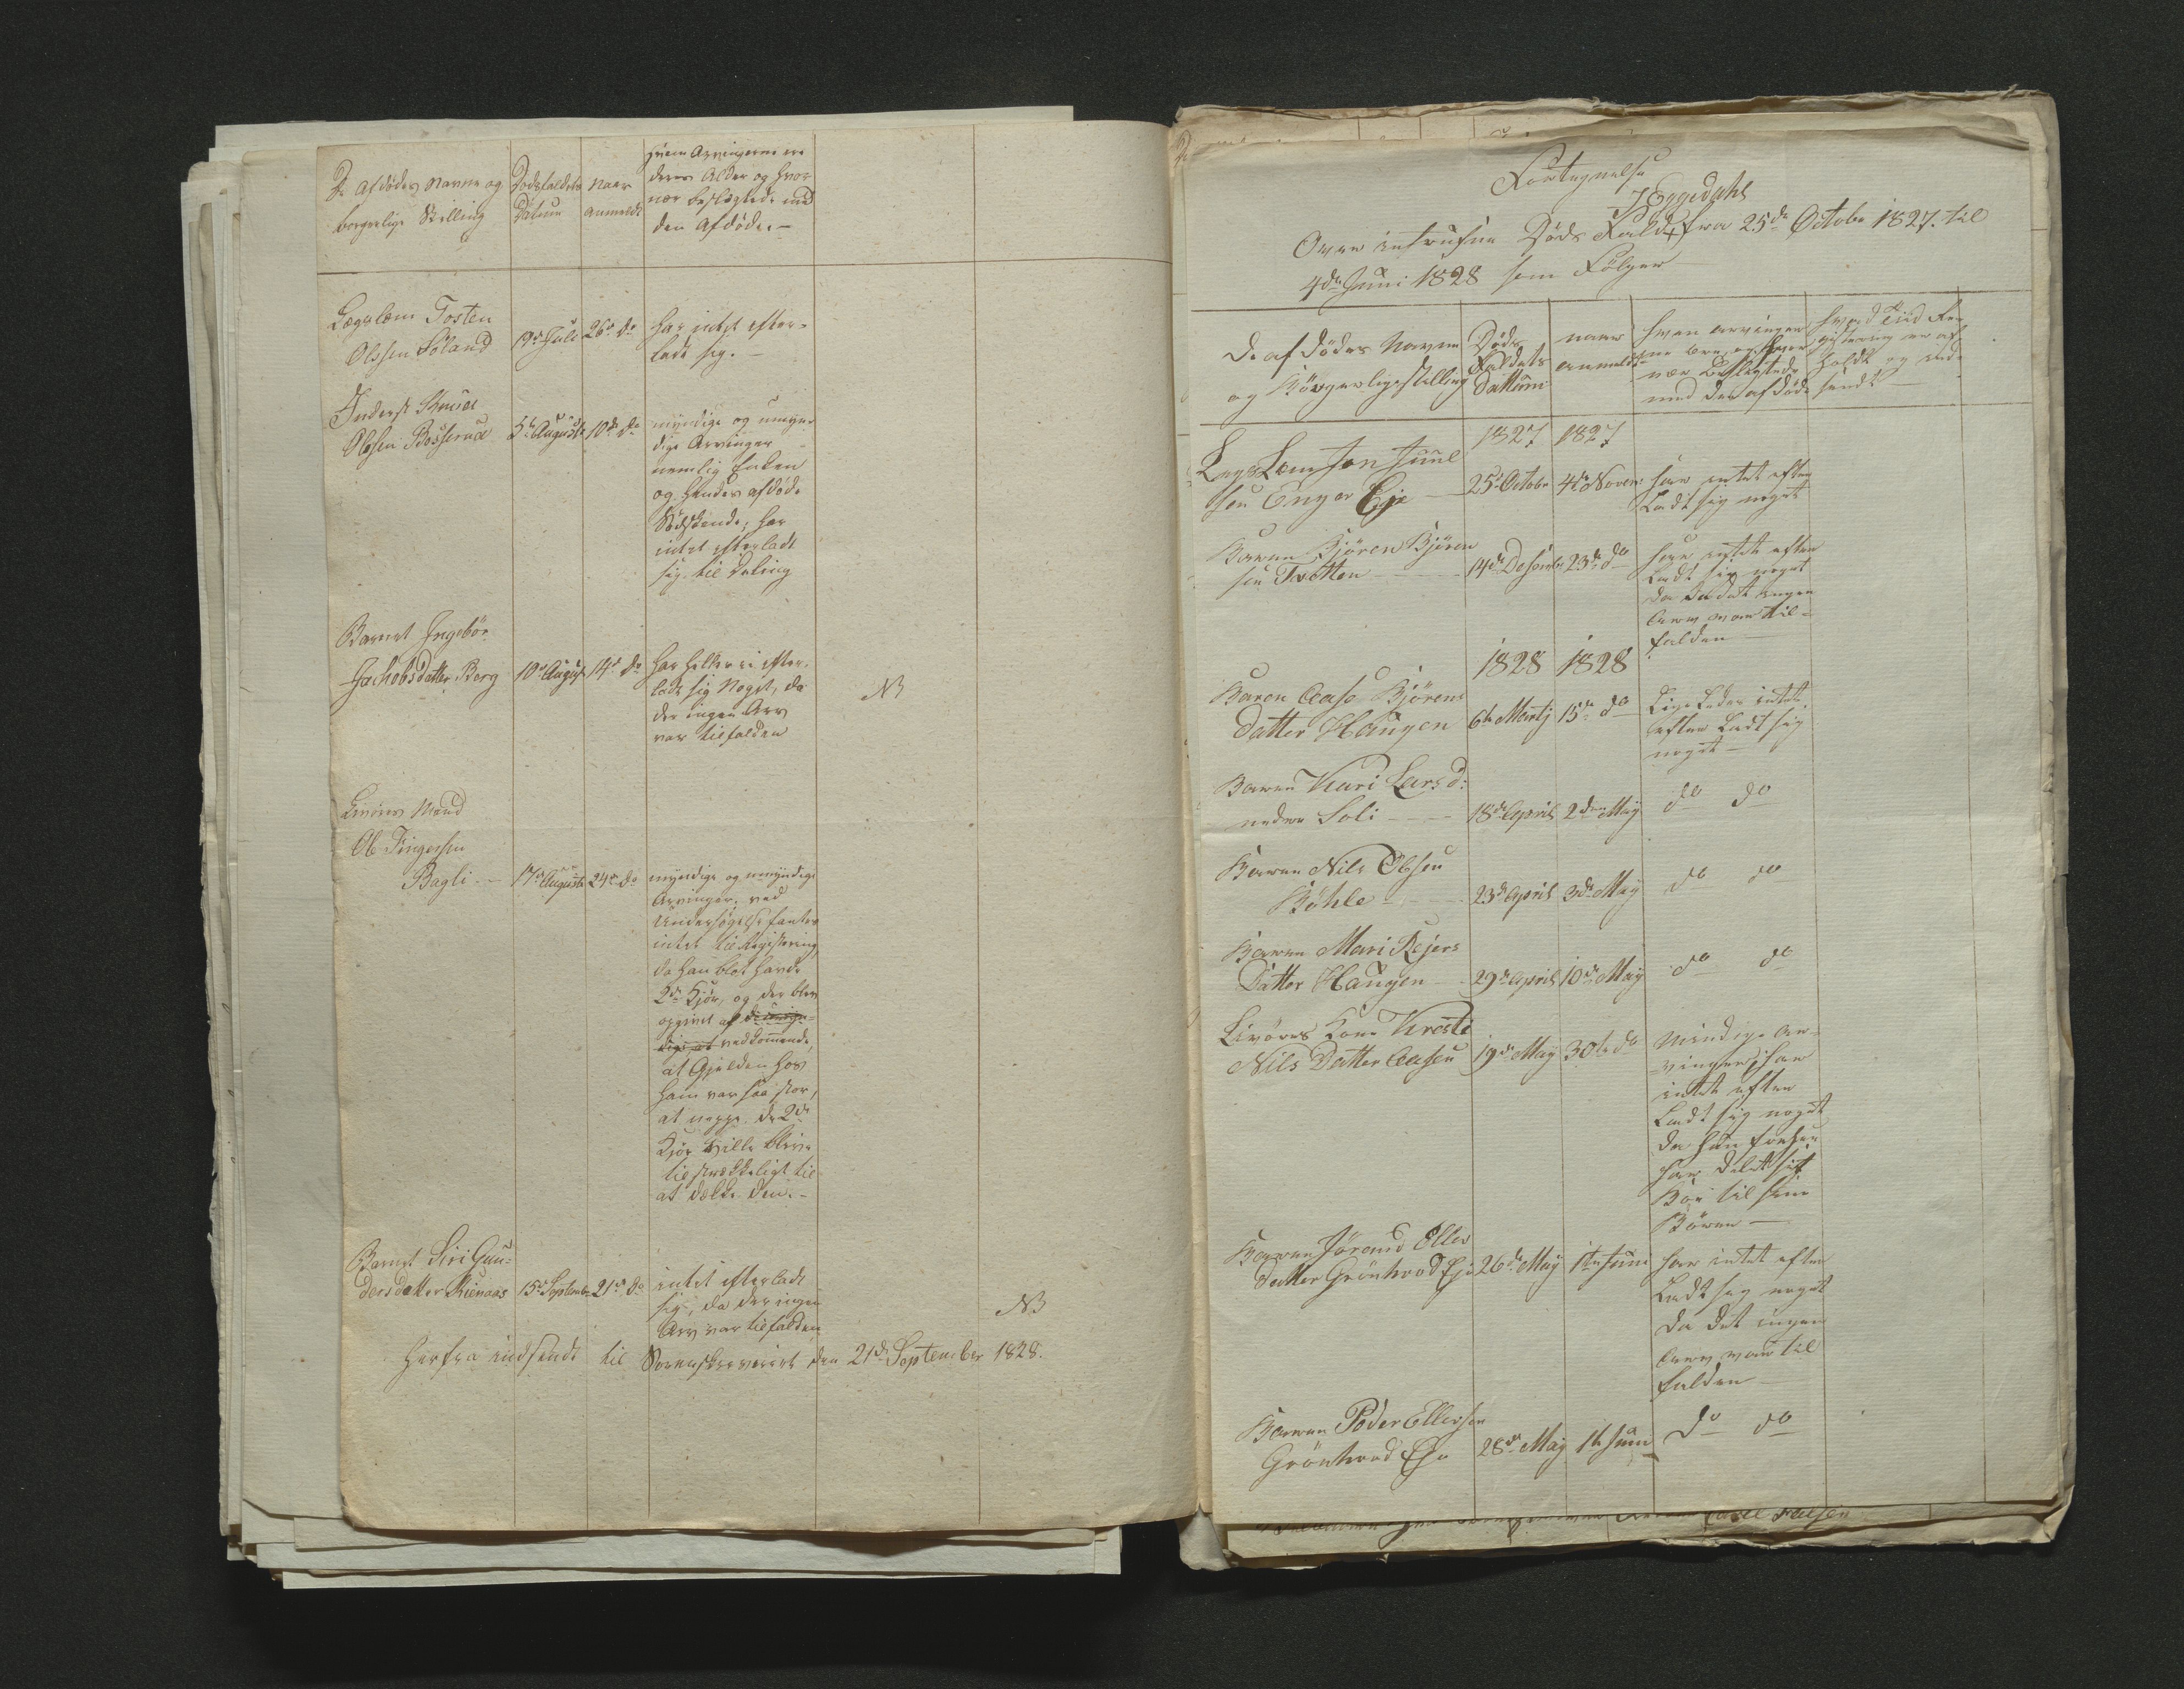 De afdødes Navne og
borgerlige Stilling
Dødsfaldets
Datum
Naar
anmeldt
Hvem Arvingerne ere
deres Alder og hvor
nær beslægtede med
den Afdøde.—
Lægslem Tosten
Olssen Søland
19de Juli
26de do
har intet efter-
ladt sig. —
Inderst Knud
Olssen Bosserud
5te August
10de do
myndige og umyn-
dige Arvinger
nemlig Enken
og hendes afdøde
Sødskende; har
intet efterladt
sig til Deling
Barnet Ingebör
Jachobsdatter Berg
10de August
14de do
har heller ei efter-
ladt sig Noget, da
der ingen Arv
var tilfalden
NB
Livøres Mand
Ole Fingersen
Bagli. —
17de August
24de do
myndige og umyndige
Arvinger, ved
Undersøgelse fantes
intet til Registering,
da han blot havde
2de Kjør, og der blev
opgivet af
vedkommende,
at Gjelden hos
ham var saa stor,
at neppe de 2de
Kjør ville blive
tilstrækkeligt til
at dække den. —
Barnet Siri Gun-
dersdatter Kienaas
15de September
21de do
intet efterladt
sig, da der ingen
Arv var tilfalden
NB
Herfra indsendt til Sorenskriveriet den 21de September 1828.
Fortegnelse
I Eggedahl
Over intrufne Døds Fald fra 25de Octobr 1827. til
4de Juni 1828 som Følger
De af dødes Navne
og Börgerligestelling
Døds
Faldets
Dattum
naar
anmeldt
hvem arvinger
ne ere, og hvor
nær Beslegtede
med den af døde
hvad Tiid Re
gistering er af
holdt og ind-
sendt —
1827 1827
Legs Lem Jon Juul
sen Enger Eje
25de Octobr
4de Novem
har intet efter
Ladt sig noget
Barnen Björen Björen
sen Tvetten
14de Desembr
23de do
har intet efter
Ladt sig noget
da det ingen
Arv var til-
falden —
1828 1828
Baren Aase Bjørens
datter Haugen
6te Martj
15de do
Lige Ledes intet
efter Ladt sig
noget —
Barnen Kari Lars d:
nedre Soli
18de April
2den May
do do
Barnen Nils Olsen
Bøhle
23de April
3de May
do do
Barnen Mari Rejers
Datter Haugen
29de April
10de May
do do
Livøres Kone Kresti
Nils Datter Aasen
19de May
30te do
Mindige Ar-
vinger, har
intet efter
Ladt sig noget
da hun forhen
har delet sit
Boe til sine
Børen —
Barnen Jörand Ellev
datter Grönhovd Eje
26de May
1te Juni
har intet efter
Ladt sig noget
da det ingen
Arv var til
falden —
Barnen Peder Ellevsen
Grönhovd Eje
28de May
1te Juni
do do